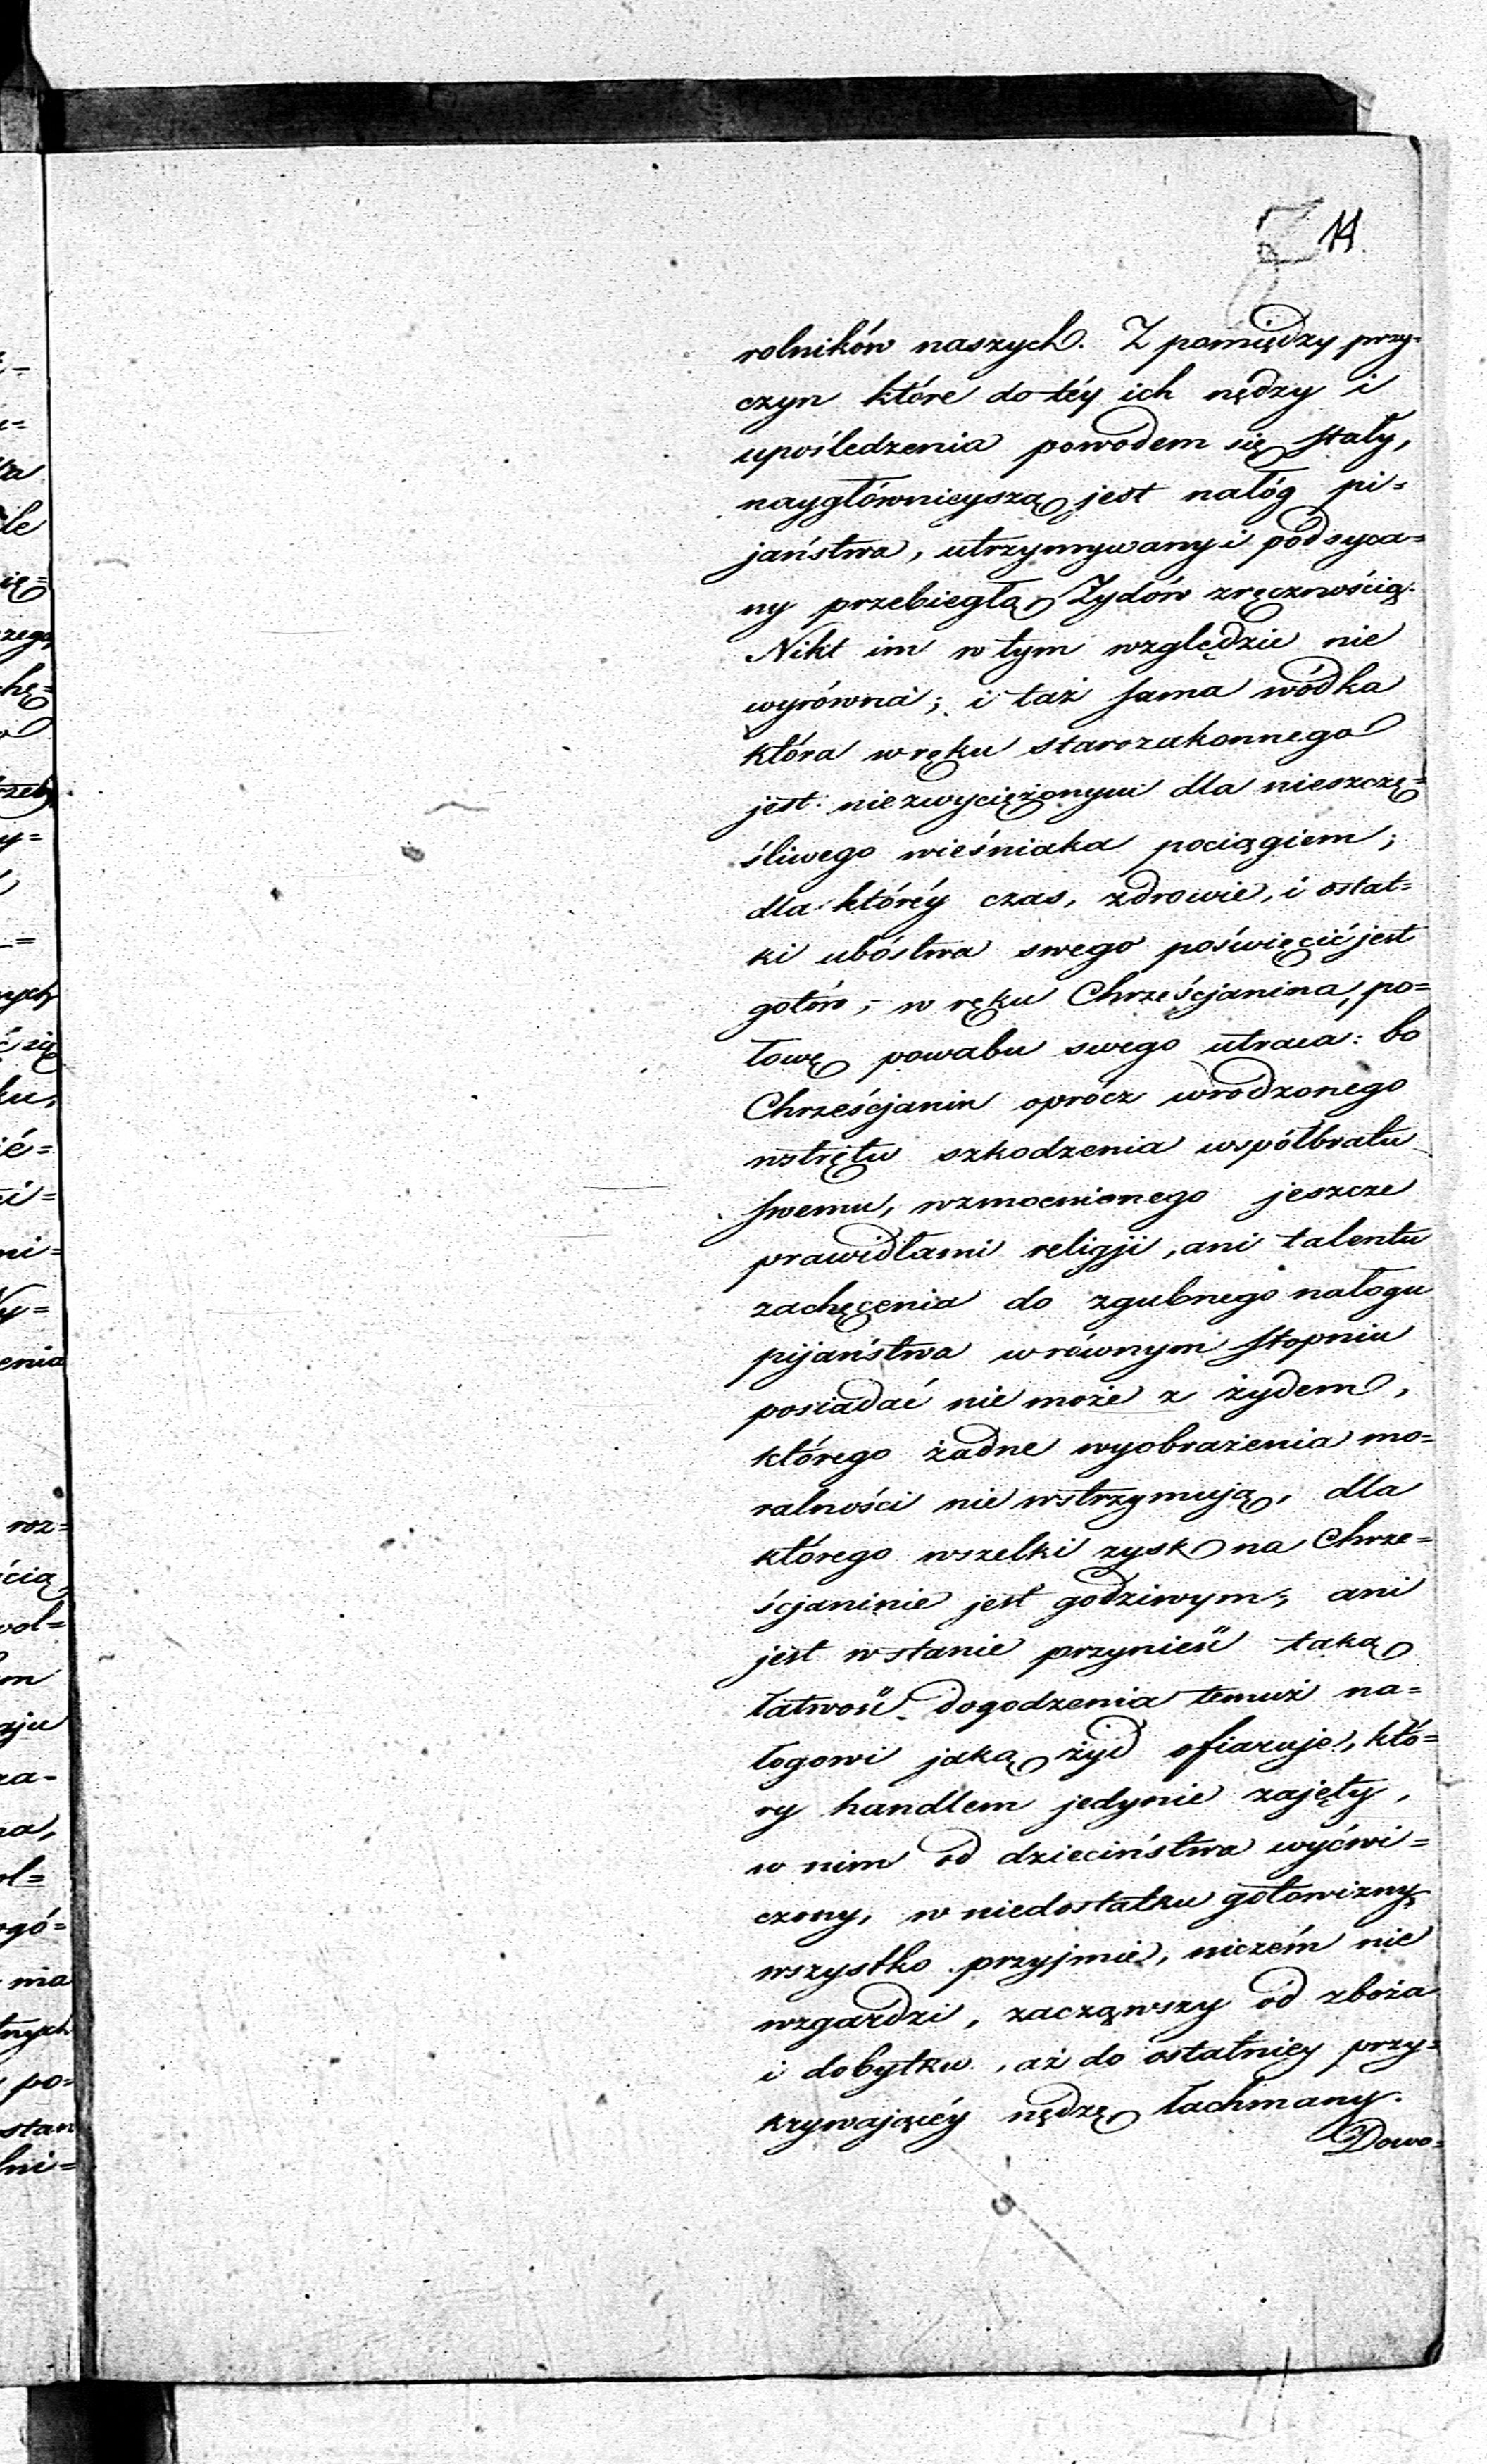 14.
rolników naszych. Z pomiędzy przy-
czyn które do téy ich nędzy i
upośledzenia powodem się stały,
naygłównieyszą jest nałóg pi=
jaństwa, utrzymywany i podsyca=
ny przebiegłą Żydów zręcznością.
Nikt im w tym względzie nie
wyrówna; i taż sama wódka
która w ręku starozakonnego
jest niezwyciężonym dla nieszczę=
śliwego wieśniaka pociągiem;
dla któréy czas, zdrowie, i ostat=
ki ubóstwa swego poświęcić jest
gotów; w ręku Chrześcjanina, po=
łowę powabu swego utraca: bo
Chrześcjanin oprócz wrodzonego
wstrętu szkodzenia współbratu
swemu, wzmocnionego jeszcze
prawidłami religji, ani talentu
zachęcenia do zgubnego nałogu
pijaństwa w równym stopniu
posiadać nie może z żydem,
którego żadne wyobrażenia mo=
ralności nie wstrzymują, dla
którego wszelki zysk na Chrze=
ścjaninie jest godziwym; ani
jest w stanie przynieść taką
łatwość dogodzenia temuż na=
łogowi jaką żyd ofiaruje, któ=
ry handlem jedynie zajęty,
w nim od dzieciństwa wyćwi=
czony, w niedostatku gotowizny,
wszystko przyjmie, niczém nie
wzgardzi, zacząwszy od zboża
i dobytku, aż do ostatniey przy=
krywającéy nędzę łachmany.
Dowo=